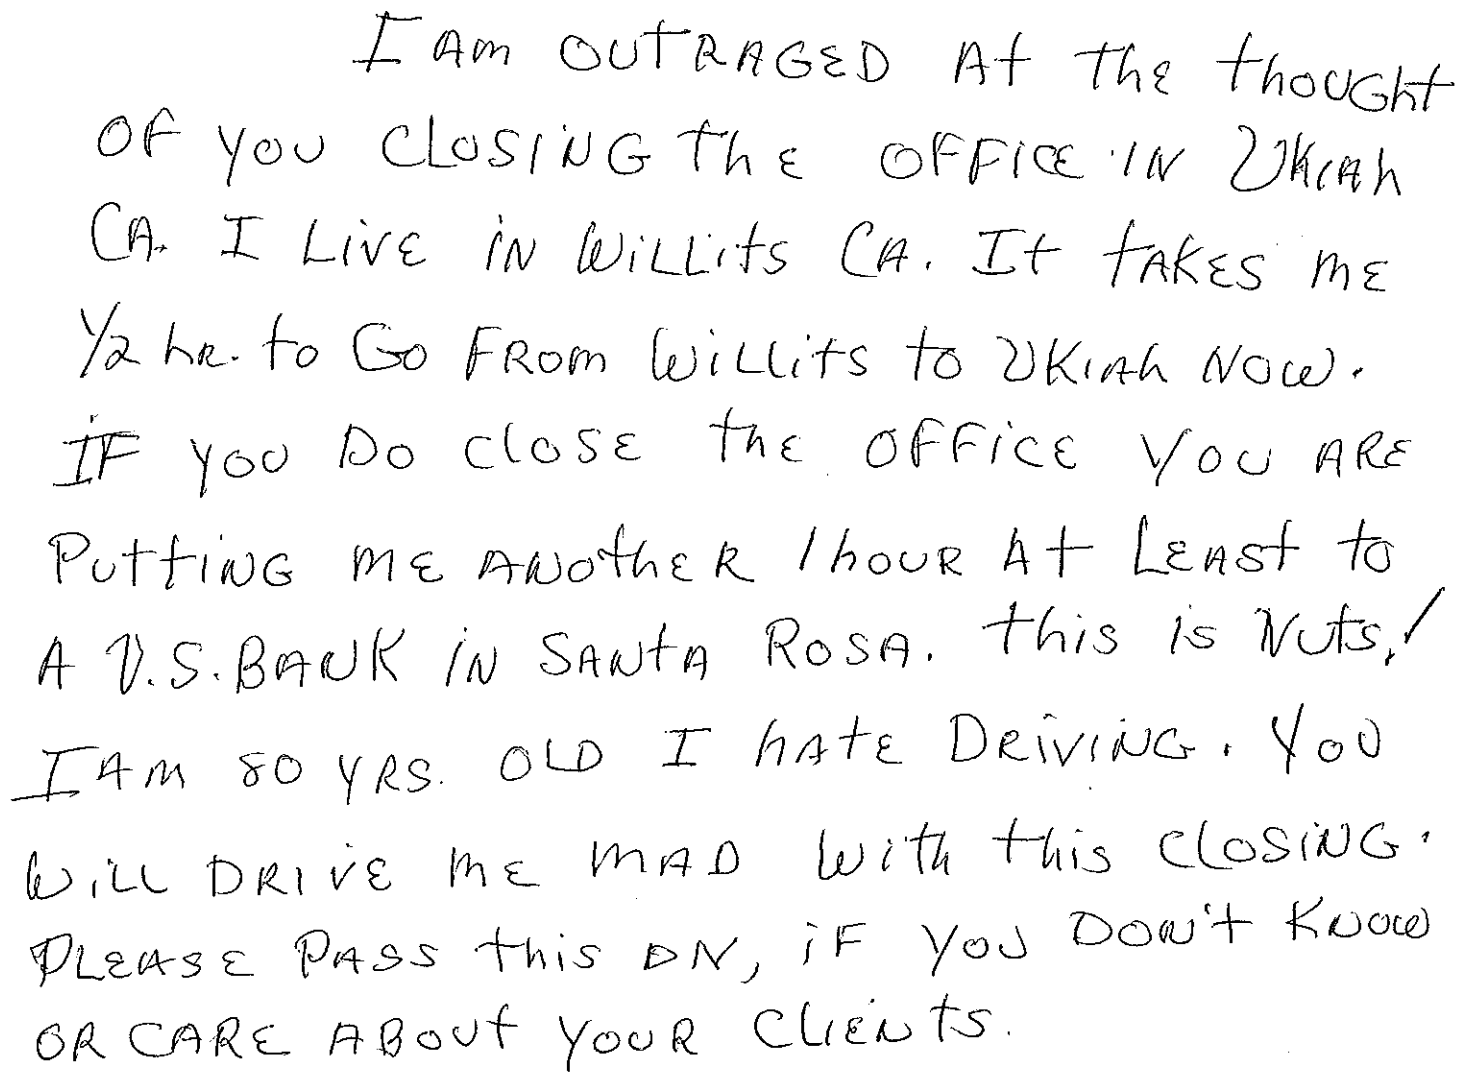 I AM OUTRAGED At the thought
OF YOU CLOSING the OFFICE IN UKIAh
CA. I LIVE IN WILLITS CA. It tAKES ME
1/2 hR. to GO FROM WILLITS to UKIAh NOW.
IF YOU DO CLOSE the OFFICE YOU ARE
PUttING ME ANOthER 1 hOUR At LEASt to
A U.S. BANK IN SANtA ROSA. this is NUts!
I AM 80 YRS. OLD I hAtE DRIVING. YOU
WILL DRIVE ME MAD With this CLOSING.
PLEASE PASS this ON, iF YOU DON't KNOW
OR CARE ABOUt YOUR CLIENTS.